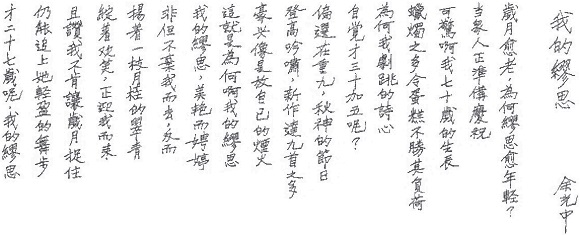 我的繆思
余光中
歲月愈老,為何繆思愈年輕?
當眾人正準備慶祝
可驚啊我七十歲的生辰
蠟燭之多令蛋糕不勝其負荷
為何我劇跳的詩心
自覺才三十加五呢?
偏選在重九,秋神的節日
登高吟嘯,新作達九首之多
豪興像是放自己的煙火
這就是為何啊我的繆思
我的繆思,美艷而娉婷
非但不棄我而去,反而
揚著一枝月桂的翠青
綻著笑,正迎我而來
且讚我不肯讓歲月捉住
仍能追上她輕盈的舞步
才二十七歲呢,我的繆思